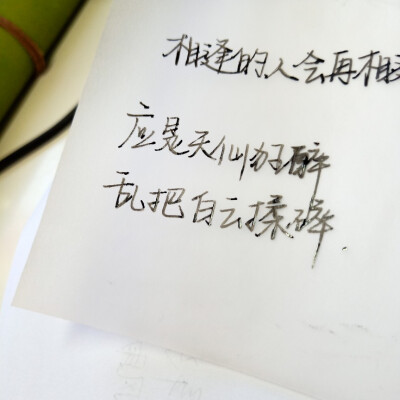 相逢的人会再相
应是天仙狂醉
乱把白云揉碎